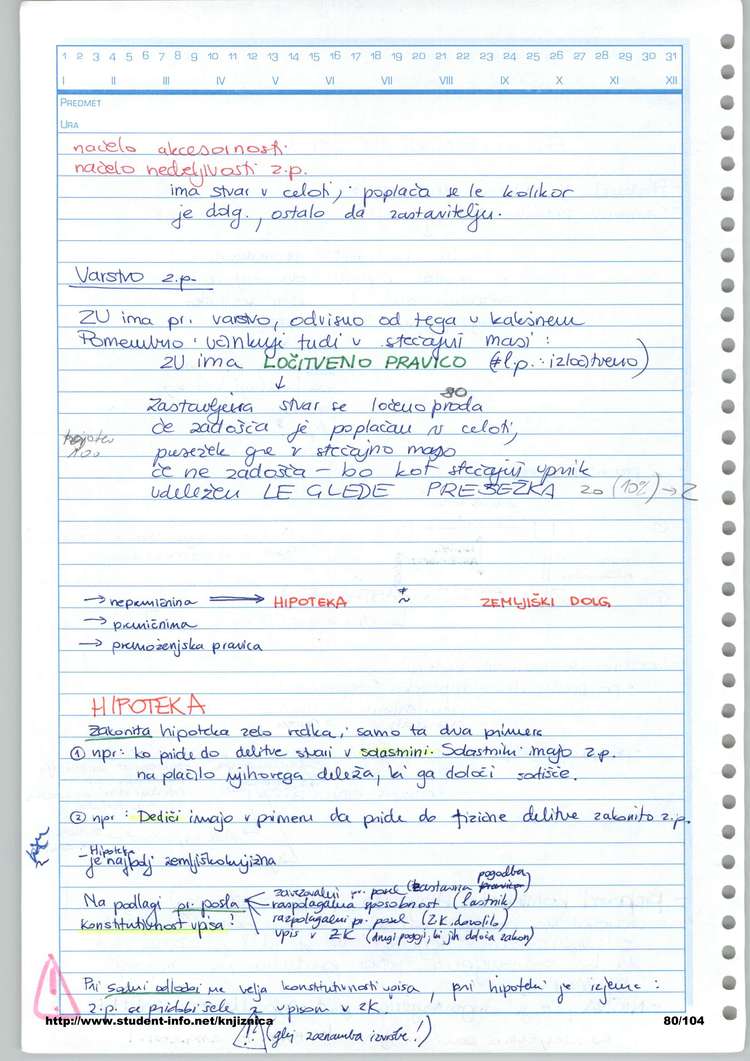 1 2 3 4 5 6 7 8 9 10 11 12 13 14 15 16 17 18 19 20 21 22 23 24 25 26 27 28 29 30 31
I II III IV V VI VII VIII IX X XI XII
PREDMET
URA
načelo akcesornosti
načelo nedeljivosti z.p.
ima stvar v celoti, poplača se le kolikor
je dolg., ostalo da zastavitelju.
Varstvo z.p.
ZU ima pr. varstvo, odvisno od tega v kakšnem
Pomembno: učinkuje tudi v stečajni masi:
ZU ima LOČITVENO PRAVICO (≠ l.p. : izločitveno)
↓
80
Zastavljena stvar se ločeno proda
če zadošča je poplačan v celoti,
presežek gre v stečajno maso
če ne zadošča – bo kot stečajni upnik
udeležen LE GLEDE PRESEŽKA 20 (10%) → 2
100
→ nepremičnina ⟹ HIPOTEKA ≠ ~ ZEMLJIŠKI DOLG
→ premičnina
→ premoženjska pravica
HIPOTEKA
Zakonita hipoteka zelo redka, samo ta dva primera
① npr: ko pride do delitve stvari v solastnini. Solastniki imajo z.p.
na plačilo njihovega deleža, ki ga določi sodišče.
② npr: Dediči imajo v primeru da pride do fizične delitve zakonito z.p.
Hipoteka
– je najbolj zemljiškoknjižna
pogodba
Na podlagi pr. posla zavezovalni pr. posel (zastavna pravica)
razpolagalna sposobnost (lastnik)
konstitutivnost vpisa! razpolagalni pr. posel (ZK dovolilo)
vpis v ZK (drugi pogoji, ki jih določa zakon)
Pri sodni odločbi ne velja konstitutivnosti vpisa, pri hipoteki je izjema:
! z.p. se pridobi šele z vpisom v ZK.
http://www.student-info.net/knjiznica 80/104
!! (glej zaznamba izvršbe!)